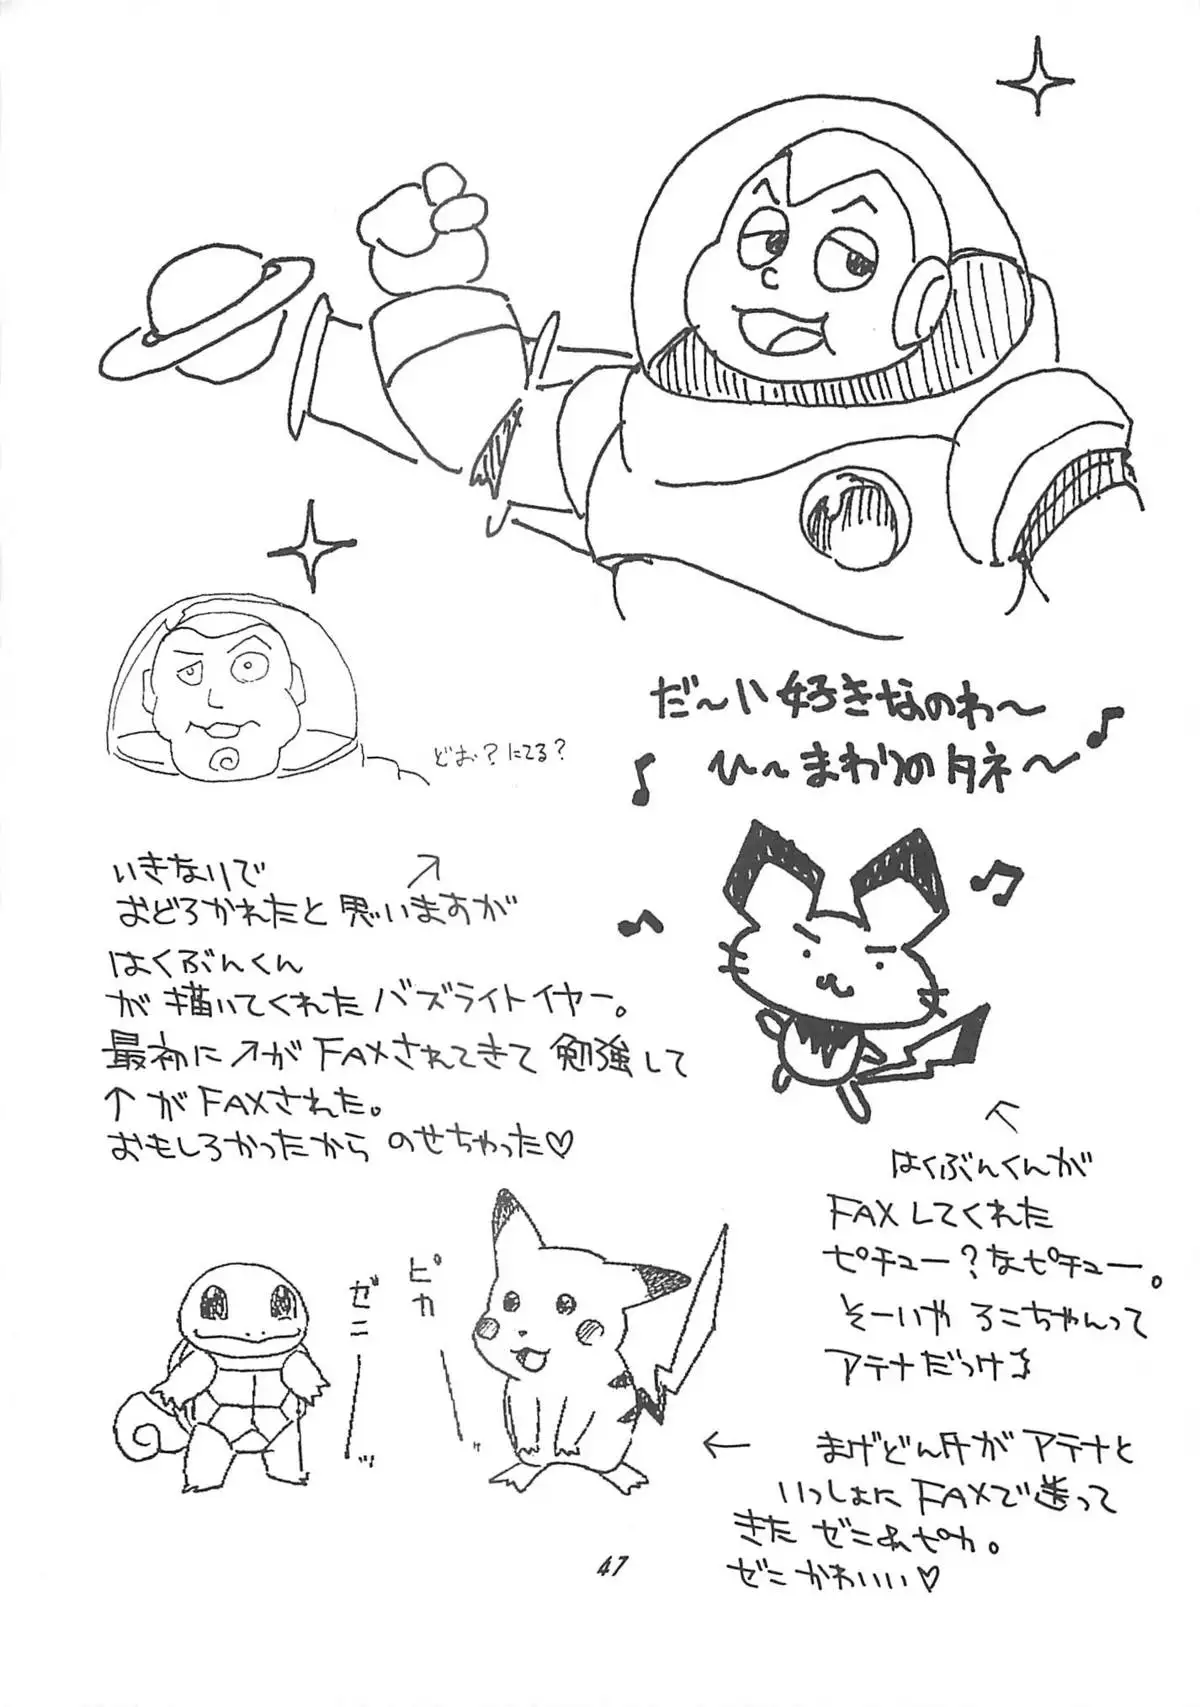 だ〜い好きなのわ〜
ひ〜まわりのタネ〜
どお?にてる?
いきなりで ↗
おどろかれたと思いますが
はくぶんくん
が描いてくれたバズライトイヤー。
最初に↗がFAXされてきて勉強して
↑がFAXされた。
おもしろかったからのせちゃった♡
←
はくぶんくんが
FAXしてくれた
ピチュー?なピチュー。
そーいやろこちゃんって
アテナだっけ
ゼニーッ
ピカーッ
← まげどん丼がアテナと
いっしょにFAXで送って
きたゼニ&ピカ。
ゼニかわいい♡
47